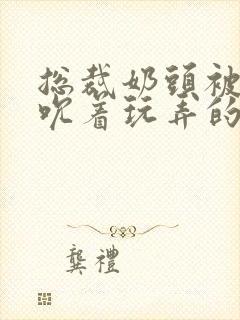 总裁奶頭被
吮着玩弄的
龔禮